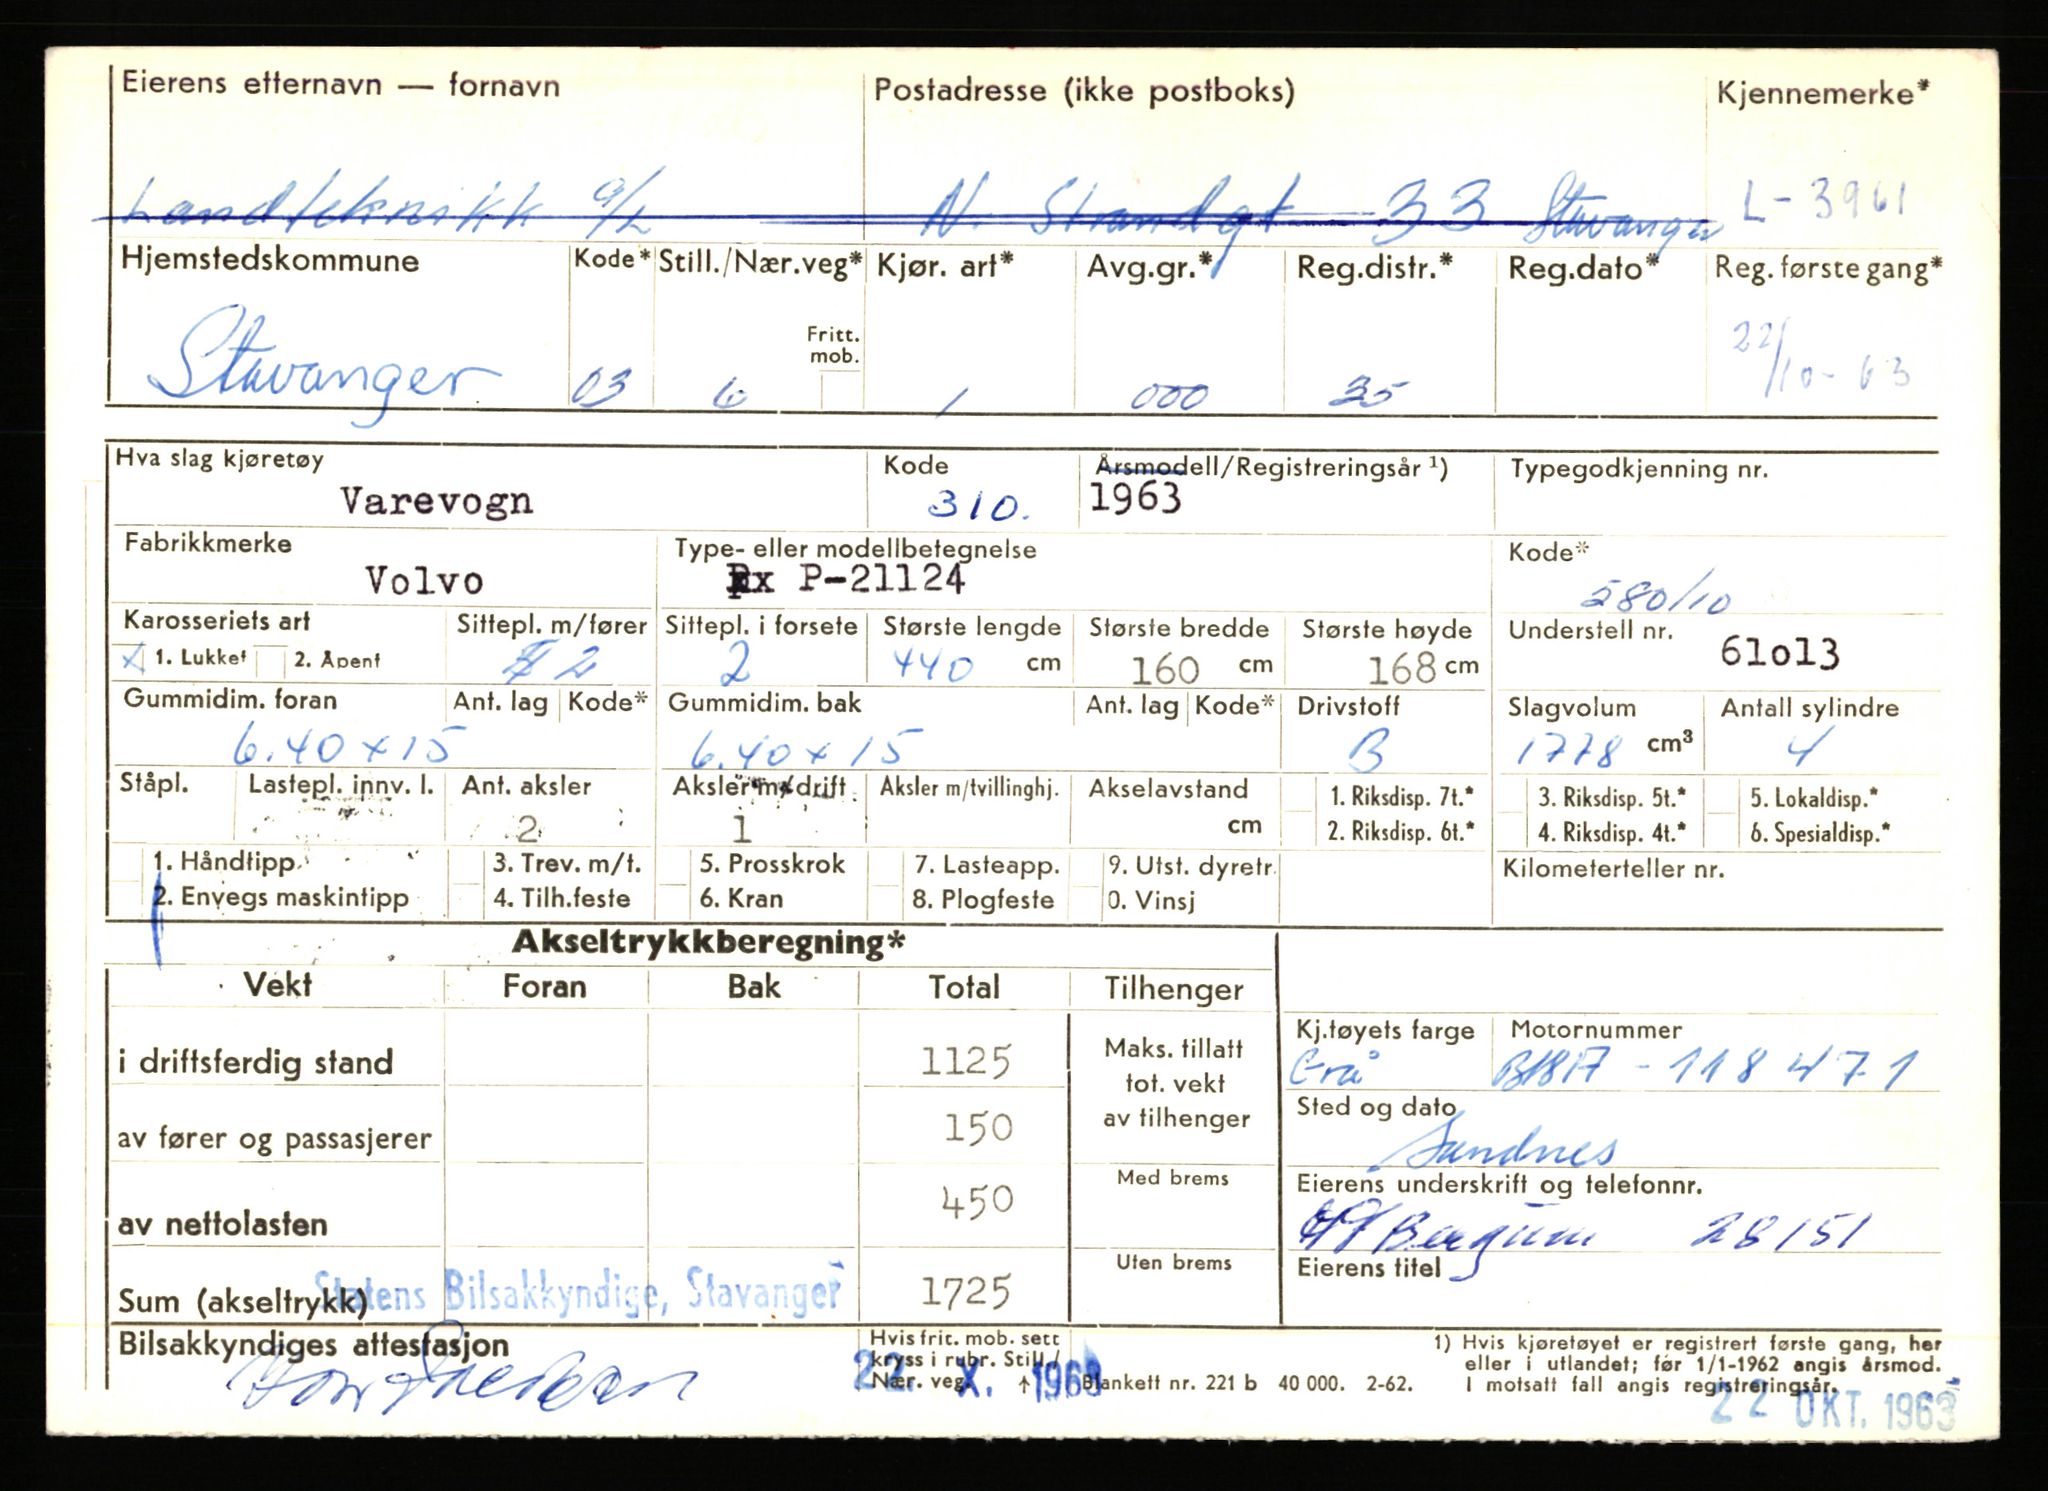 Eierens etternavn — fornavn Postadresse (ikke postboks) Kjennemerke*
Landteknikk a/L N. Strandgt 33 Stavanger L-3961
Hjemstedskommune Kode* Still./Nær.veg* Kjør. art* Avg.gr.* Reg.distr.* Reg.dato* Reg. første gang*
Fritt. mob.
Stavanger 03 6 1 000 35 22/10-63
Hva slag kjøretøy Kode Årsmodell/Registreringsår ¹) Typegodkjenning nr.
Varevogn 310. 1963
Fabrikkmerke Type- eller modellbetegnelse Kode*
Volvo P-21124 580/10
Karosseriets art Sittepl. m/fører Sittepl. i forsete Største lengde Største bredde Største høyde Understell nr.
x 1. Lukket 2. Åpent 2 2 440 cm 160 cm 168 cm 61o13
Gummidim. foran Ant. lag Kode* Gummidim. bak Ant. lag Kode* Drivstoff Slagvolum Antall sylindre
6.40 x 15 6.40 x 15 B 1778 cm³ 4
Ståpl. Lastepl. innv. l. Ant. aksler Aksler m/drift Aksler m/tvillinghj. Akselavstand 1. Riksdisp. 7t.* 3. Riksdisp. 5t.* 5. Lokaldisp.*
2 1 cm 2. Riksdisp. 6t.* 4. Riksdisp. 4t.* 6. Spesialdisp.*
1. Håndtipp. 3. Trev. m/t. 5. Prosskrok 7. Lasteapp. 9. Utst. dyretr. Kilometerteller nr.
2. Envegs maskintipp 4. Tilh.feste 6. Kran 8. Plogfeste 0. Vinsj
Akseltrykkberegning*
Vekt Foran Bak Total Tilhenger
i driftsferdig stand 1125 Maks. tillatt tot. vekt av tilhenger
Kj.tøyets farge Motornummer
Grå B18A - 118471
av fører og passasjerer 150
Sted og dato
Sandnes
av nettolasten 450 Med brems
Eierens underskrift og telefonnr.
Bergum 28151
Sum (akseltrykk) 1725 Uten brems
Eierens titel
Statens Bilsakkyndige, Stavanger
Bilsakkyndiges attestasjon
Hvis frit. mob. sett
kryss i rubr. Still./
Nær. veg. ↑
22. X. 1963
Blankett nr. 221 b 40 000. 2-62.
1) Hvis kjøretøyet er registrert første gang, her
eller i utlandet; før 1/1-1962 angis årsmod.
I motsatt fall angis registreringsår.
22 OKT. 1963